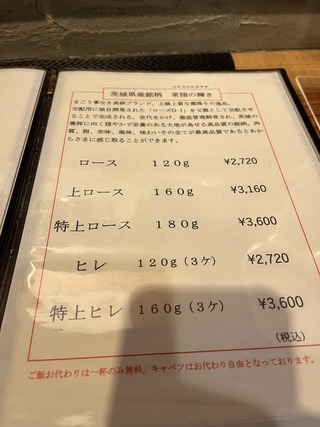 ひたちのかがやき
茨城県産銘柄 常陸の輝き
まごう事なき高級ブランド、上級上質な霜降りの逸品。
交配用に独自開発された「ローズD-1」を父親として交配させ
ることで完成される、世代をかけ、徹底管理飼育され、茨城の
養豚に向く穏やかで栄養のある大地が為せる高品質の銘柄。肉
質、脂、赤味、風味、味わいその全てが最高品質であるとあか
らさまに感じ取ることができます。
ロース 120g ¥2,720
上ロース 160g ¥3,160
特上ロース 180g ¥3,600
ヒレ 120g(3ケ) ¥2,720
特上ヒレ 160g(3ケ) ¥3,600
(税込)
ご飯お代わりは一杯のみ無料。キャベツはお代わり自由となっております。